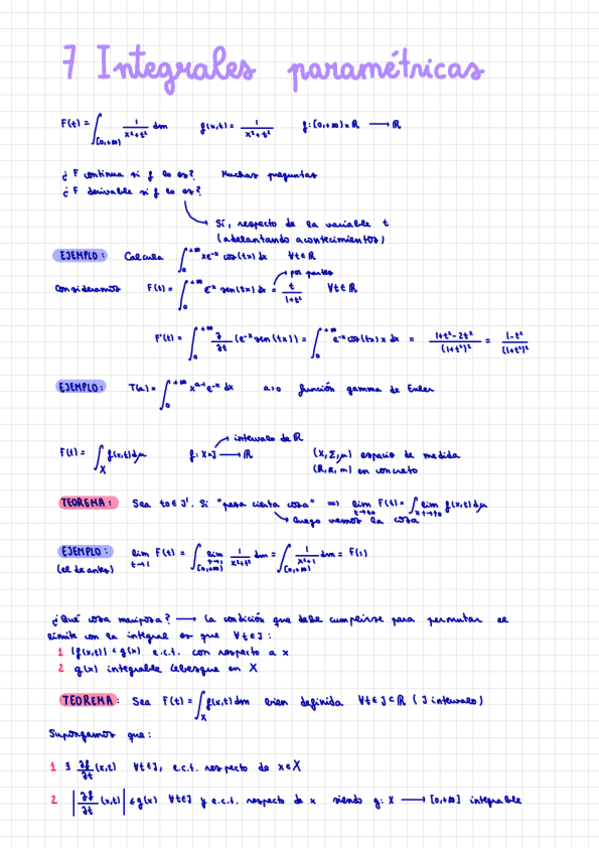 7 Integrales paramétricas
F(t) = ∫_[0,+∞) 1/(x²+t²) dm   f(x,t) = 1/(x²+t²)   f: [0,+∞)×ℝ ⟶ ℝ
¿F continua si f lo es?   Muchas preguntas
¿F derivable si f lo es?
Sí, respecto de la variable t
(adelantando acontecimientos)
EJEMPLO: Calcula ∫_0^{+∞} xe^{-x} cos(tx) dx   ∀t∈ℝ
por partes
Consideramos   F(t) = ∫_0^{+∞} e^{-x} sen(tx) dx = t/(1+t²)   ∀t∈ℝ
F'(t) = ∫_0^{+∞} ∂/∂t (e^{-x} sen(tx)) = ∫_0^{+∞} e^{-x} cos(tx) x dx = (1+t²-2t²)/(1+t²)² = (1-t²)/(1+t²)²
EJEMPLO: Γ(a) = ∫_0^{+∞} x^{a-1} e^{-x} dx   a>0   función gamma de Euler
intervalo de ℝ
F(t) = ∫_X f(x,t)dμ   f: X×J ⟶ ℝ   (X,Σ,μ) espacio de medida
(ℝ, , m) en concreto
TEOREMA: Sea t0 ∈ J'. Si "pasa cierta cosa" ⟹ lim_{t→t0} F(t) = ∫_X lim_{t→t0} f(x,t)dμ
luego vemos la cosa
EJEMPLO: lim_{t→1} F(t) = ∫_[0,+∞) lim_{t→1} 1/(x²+t²) dm = ∫_[0,+∞) 1/(x²+1) dm = F(1)
(el de antes)
¿Qué cosa mariposa? ⟶ La condición que debe cumplirse para permutar el
límite con la integral es que ∀t∈J:
1 |f(x,t)| ≤ g(x) e.c.t. con respecto a x
2 g(x) integrable Lebesgue en X
TEOREMA: Sea F(t) = ∫_X f(x,t)dm bien definida ∀t∈J⊂ℝ (J intervalo)
Supongamos que:
1 ∃ ∂f/∂t (x,t)   ∀t∈J, e.c.t. respecto de x∈X
2 |∂f/∂t (x,t)| ≤ g(x)   ∀t∈J y e.c.t. respecto de x   siendo g: X ⟶ [0,+∞] integrable